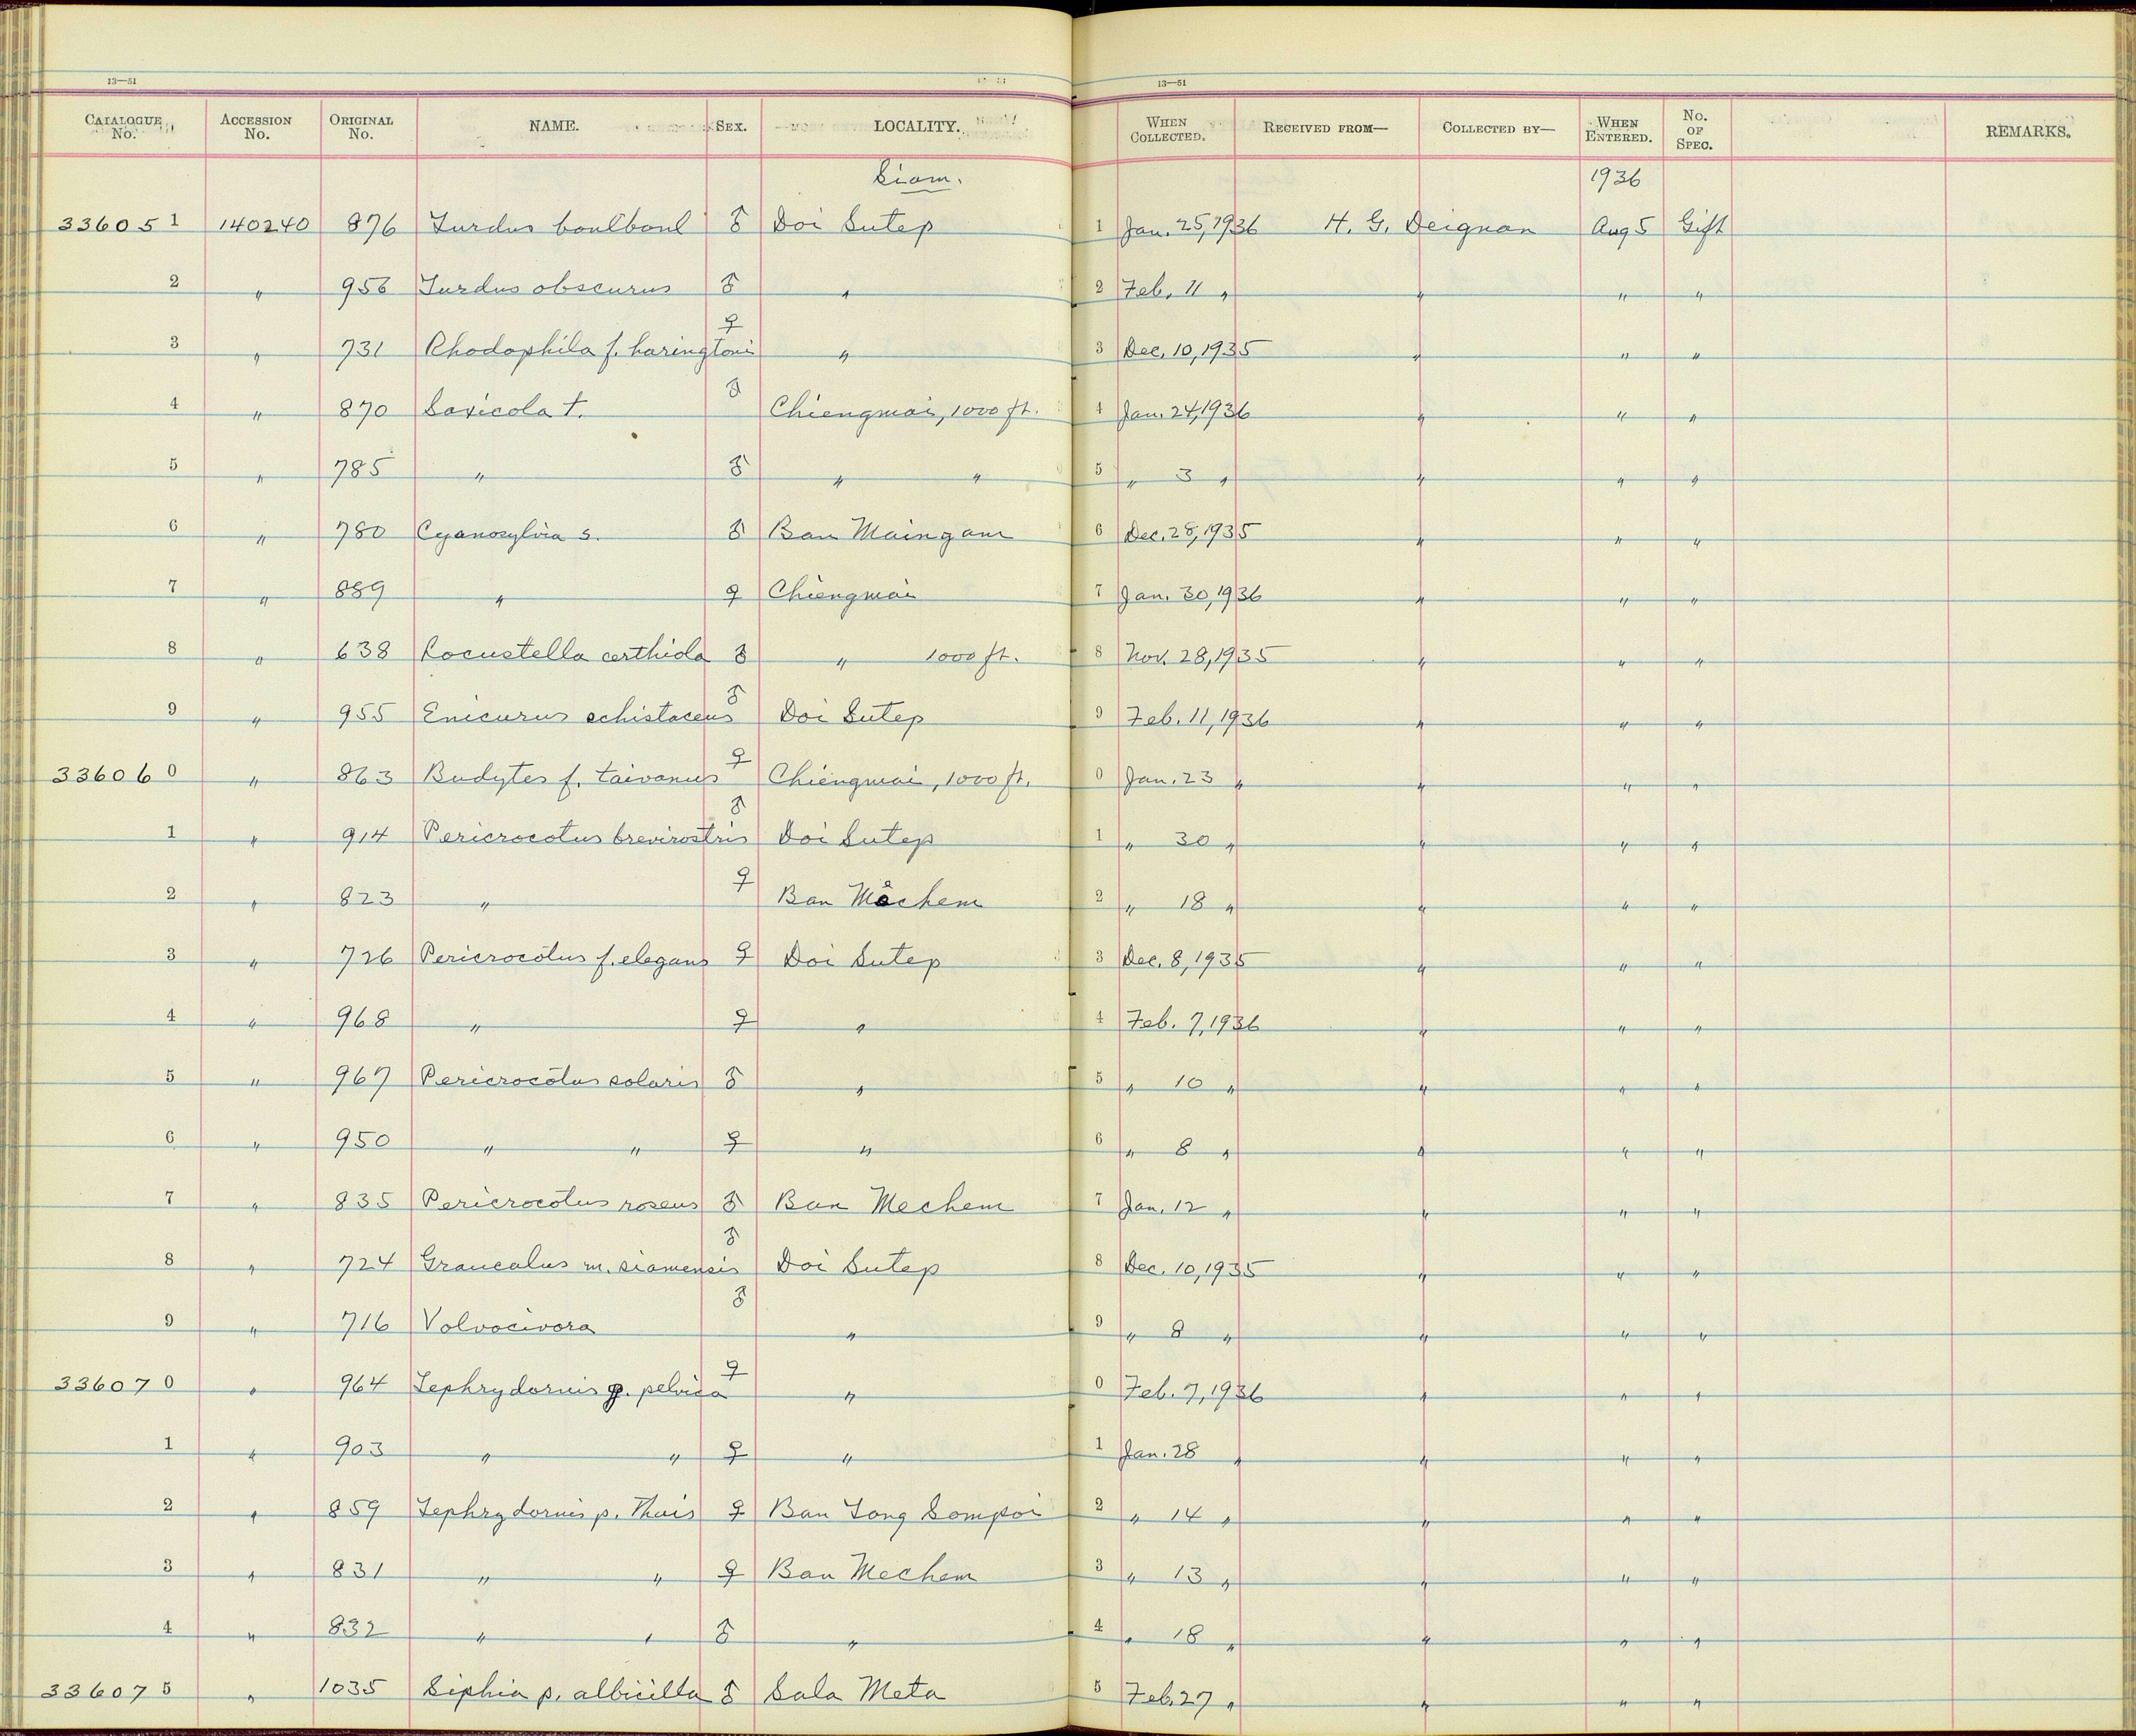 13—51 13—51
CATALOGUE No. ACCESSION No. ORIGINAL No. NAME. SEX. LOCALITY. WHEN COLLECTED. RECEIVED FROM— COLLECTED BY— WHEN ENTERED. No. OF SPEC. REMARKS.
Siam. 1936
336051 140240 876 Turdus boulboul ♂ Doi Sutep 1 Jan. 25, 1936 H. G. Deignan Aug 5 Gift
2 " 956 Turdus obscurus ♂ " 2 Feb. 11 " " " "
3 " 731 Rhodophila f. haringtoni ♀ " 3 Dec. 10, 1935 " " "
4 " 870 Saxicola t. ♂ Chiengmai, 1000 ft. 4 Jan. 24, 1936 " " "
5 " 785 " ♂ " " 5 " 3 " " " "
6 " 780 Cyanosylvia s. ♂ Ban Maingam 6 Dec. 28, 1935 " " "
7 " 889 " ♀ Chiengmai 7 Jan. 30, 1936 " " "
8 " 638 Locustella certhiola ♂ " 1000 ft. 8 Nov. 28, 1935 " " "
9 " 955 Enicurus schistaceus ♂ Doi Sutep 9 Feb. 11, 1936 " " "
336060 " 863 Budytes f. taivanus ♀ Chiengmai, 1000 ft. 0 Jan. 23 " " " "
1 " 914 Pericrocotus brevirostris ♂ Doi Sutep 1 " 30 " " " "
2 " 823 " ♀ Ban Mechem 2 " 18 " " " "
3 " 726 Pericrocotus f. elegans ♀ Doi Sutep 3 Dec. 8, 1935 " " "
4 " 968 " ♀ " 4 Feb. 7, 1936 " " "
5 " 967 Pericrocotus solaris ♂ " 5 " 10 " " " "
6 " 950 " " ♀ " 6 " 8 " " " "
7 " 835 Pericrocotus roseus ♂ Ban Mechem 7 Jan. 12 " " " "
8 " 724 Graucalus m. siamensis ♂ Doi Sutep 8 Dec. 10, 1935 " " "
9 " 716 Volvocivora ♂ " 9 " 8 " " " "
336070 " 964 Tephrydornis p. pelvica ♀ " 0 Feb. 7, 1936 " " "
1 " 903 " " ♀ " 1 Jan. 28 " " " "
2 " 859 Tephrydornis p. Thais ♀ Ban Tong Sompoi 2 " 14 " " " "
3 " 831 " " ♀ Ban Mechem 3 " 13 " " " "
4 " 832 " " ♂ " 4 " 18 " " " "
336075 " 1035 Siphia p. albicilla ♂ Sala Meta 5 Feb. 27 " " " "